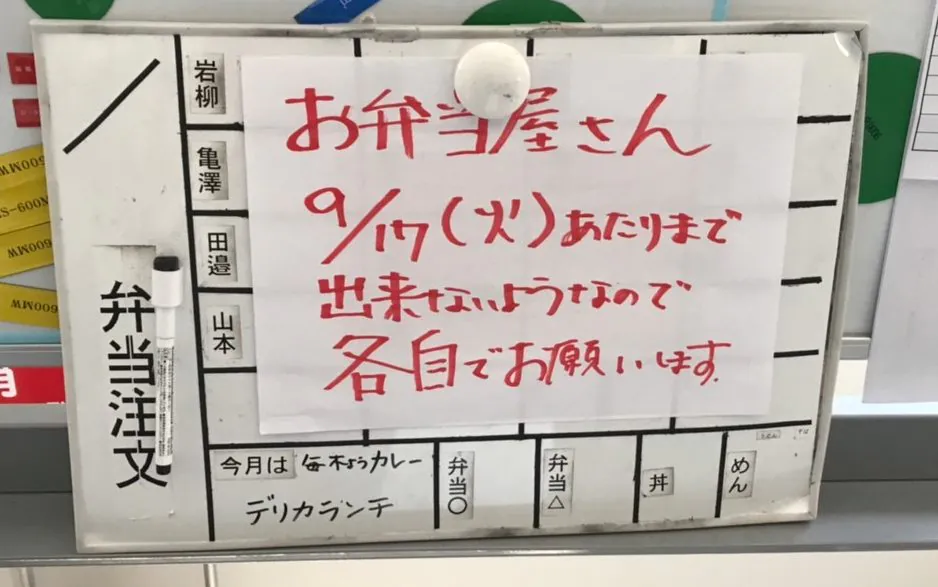 お弁当屋さん
9/17(火)あたりまで
出来ないようなので
各自でお願いします
弁当注文
岩柳
亀澤
田邉
山本
今月は 毎木ようカレー
デリカランチ
弁当○
弁当△
丼
めん
うどん
そば
600MW
600MW
600MW
月